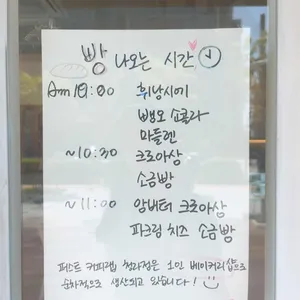 빵 나오는 시간
Am 10:00 휘낭시에
뺑오 쇼콜라
마들렌
~10:30 크로아상
소금빵
~11:00 앙버터 크로아상
파크림 치즈 소금빵
페스트 커피랩 청라점은 1인 베이커리샵으로
순차적으로 생산되고 있습니다!